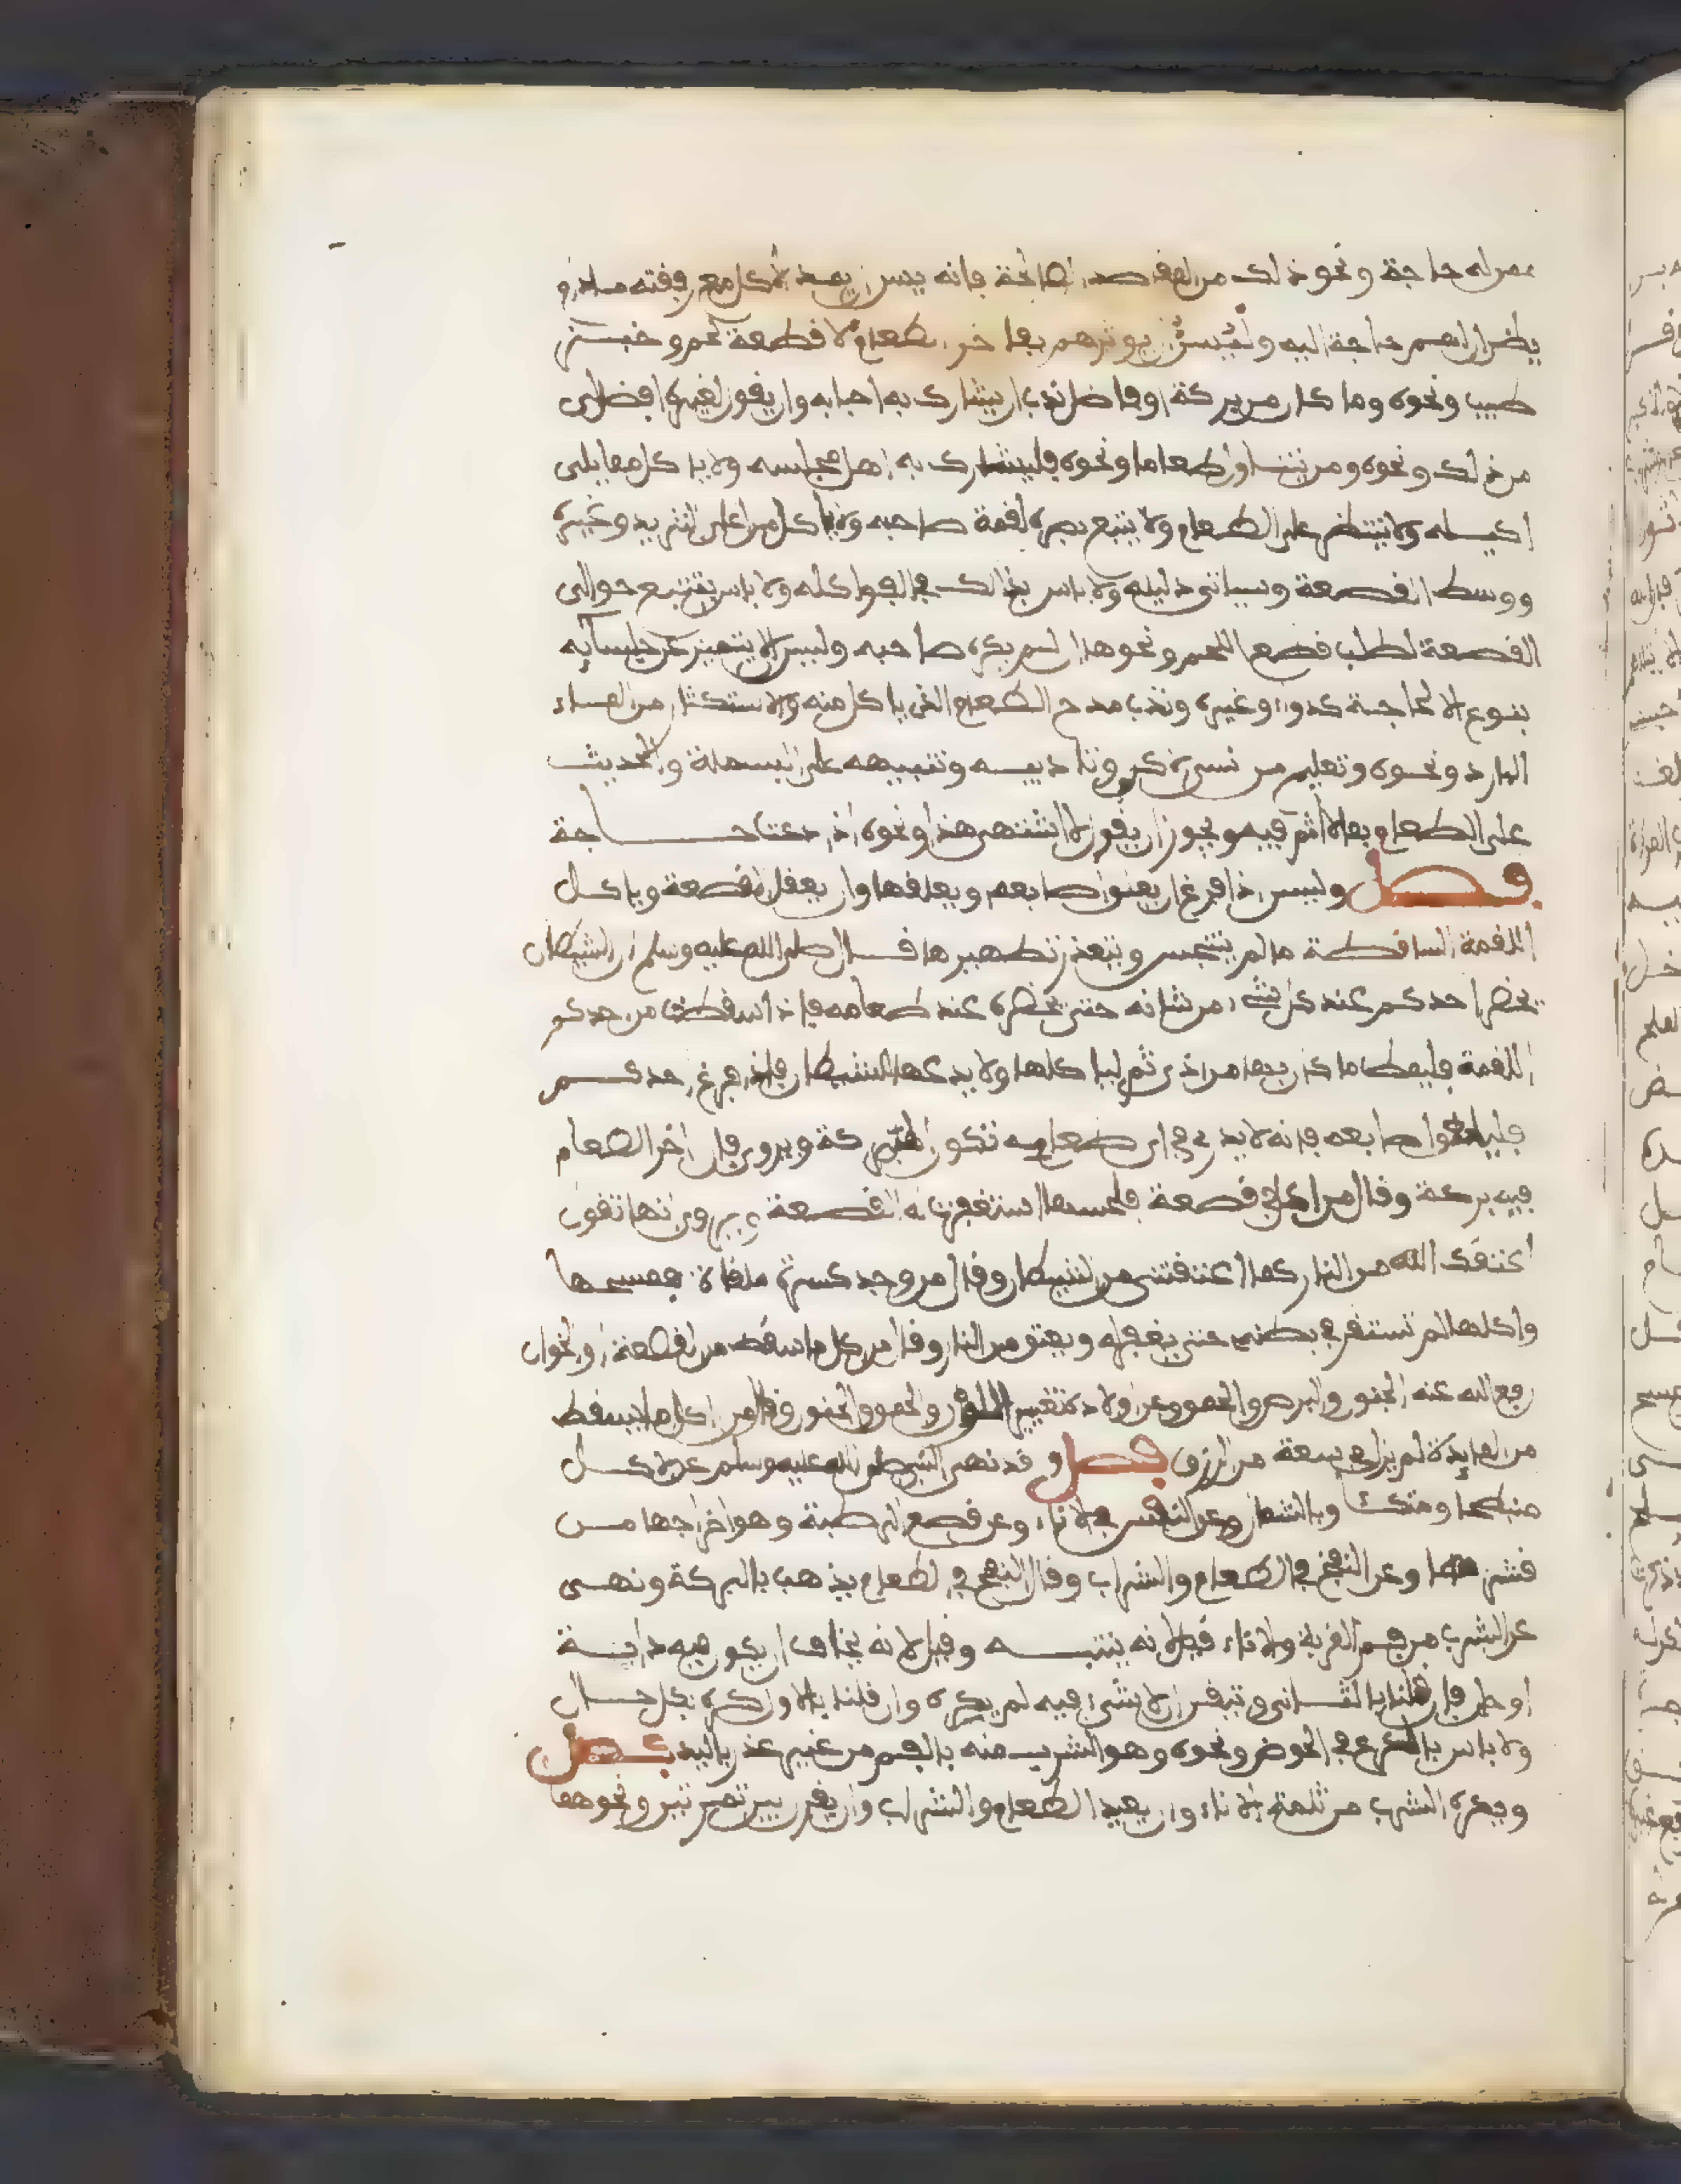 ممن له حاجة ونحو ذلك من المقاصد الصالحة فانه يسن ان يمد الاكل مع رفقته ما دام
يظن ان لهم حاجة اليه و يوثرهم بفاخر الطعام كقطعة لحم وخبز
طيب ونحوه وما كان من بركة او فاضل ندب ان يشارك به احبابه وان يقول لغيره افضل لي
من ذلك ونحوه ومن يتناول طعاما ونحوه فليشارك به اهل مجلسه ولا ياكل مما يلي
اكيله ولا ينتظر على الطعام ولا يتبع بصره لقمة صاحبه ولا ياكل من اعلى الثريد وغيره
ووسط القصعة وسياتي دليله ولا باس بذالك في الفواكه ولا باس بتتبع حوالي
القصعة لطلب قطع اللحم ونحوها ان لم يكره صاحبه وليس الا يتميز عن جلسائه
بنوع الا لحاجة كدواء وغيره وندب مدح الطعام الذي ياكل منه والاستكثار من الماء
البارد ونحوه وتعليم من نسي ذكر وتاديبه وتنبيهه على البسملة والحديث
على الطعام بما لا اثم فيه ويجوز ان يقول لا اشتهي هذا ونحوه اذا دعت حاجة
فصل وليس اذا فرغ ان يلعق اصابعه ويلعقها وان يغسل القصعة وياكل
اللقمة الساقطة ما لم يتنجس ويتعذر تطهيرها قال صلى الله عليه وسلم ان الشيطان
يحضر احدكم عند كل شيء من شانه حتى يحضره عند طعامه فاذا سقطت من احدكم
اللقمة فليمط ما كان بها من اذى ثم لياكلها ولا يدعها للشيطان فاذا فرغ احدكم
فليلعق اصابعه فانه لا يدري في اي طعامه تكون البركة ويروى فان اخر الطعام
فيه بركة وقال من اكل في قصعة فلحسها استغفرت له القصعة ويروى انها تقول
اعتقك الله من النار كما اعتقتني من الشيطان وقال من وجد كسرة ملقاة فمسحها
واكلها لم تستقر في بطنه حتى يغفر له ويعتق من النار وقال من اكل ما سقط من القصعة او الخوان
رفع الله عنه الجنون والبرص والحمق وعن اولاده تغيير اللون والحمق والجنون وقال من اكل ما يسقط
من المايدة لم يزل في سعة من الرزق فصل وقد نهى النبي صلى الله عليه وسلم عن الاكل
منبطحا ومتكئا وبالشمال وعن التنفس في الاناء وعن قصع الرطبة وهو اخراجها من
قشرها وعن النفخ في الطعام والشراب وقال النفخ في الطعام يذهب بالبركة ونهى
عن الشرب من فم القربة والاناء فقيل لانه ينتنه وقيل لانه يخاف ان يكون فيه دابة
او فان قلنا بالثاني وتيقن ان لا شيء فيه لم يكره وان قلنا بالاول كره بكل حال
ولا باس بالكرع في الحوض ونحوه وهو الشرب منه بالفم من غير عذر باليد فصل
ويكره الشرب من ثلمة الاناء وان يعيب الطعام والشراب وان يقرن بين تمرتين ونحوهما